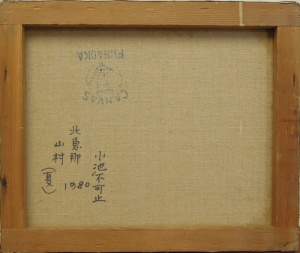 CANVAS
小池不可止
1980
北恵那
山村(夏)